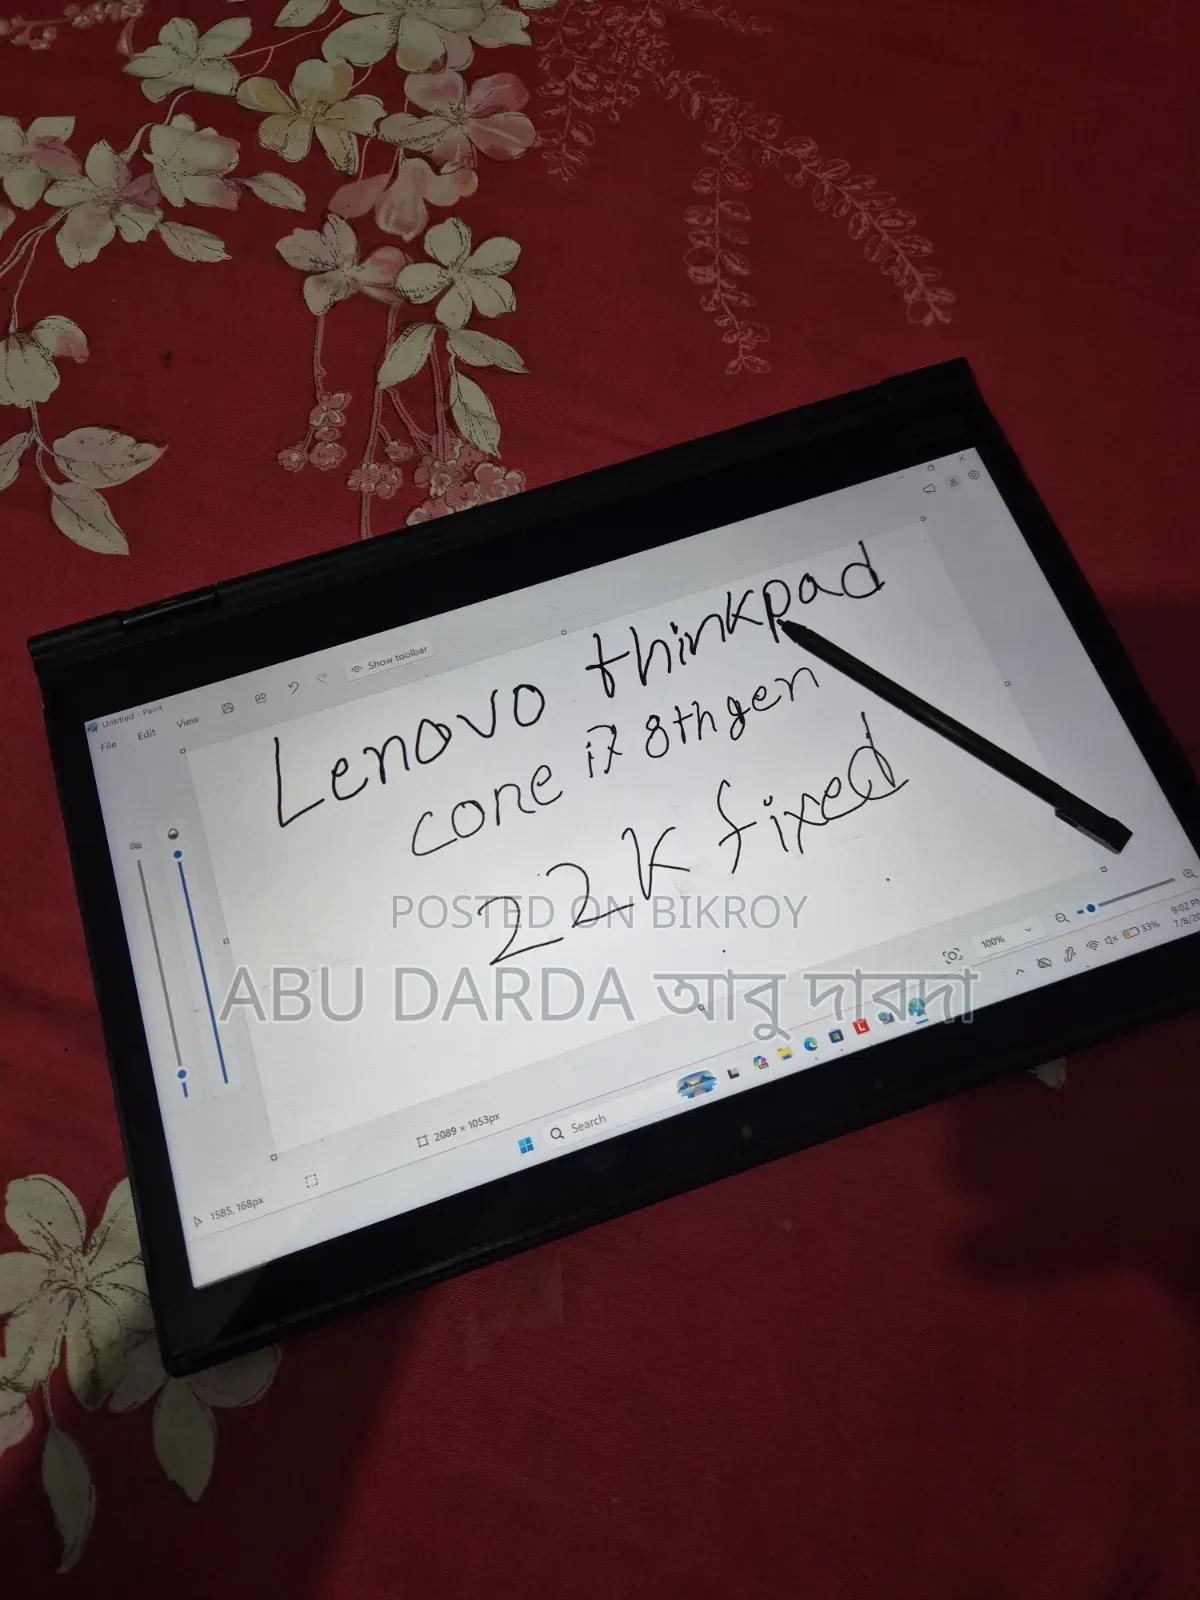 Untitled - Paint
File Edit View Show toolbar
Lenovo thinkpad
core i7 8thgen
22K fixed
POSTED ON BIKROY
ABU DARDA আবু দারদা
100%
33%
9:02 PM
2089 × 1053px
Search
1585, 168px